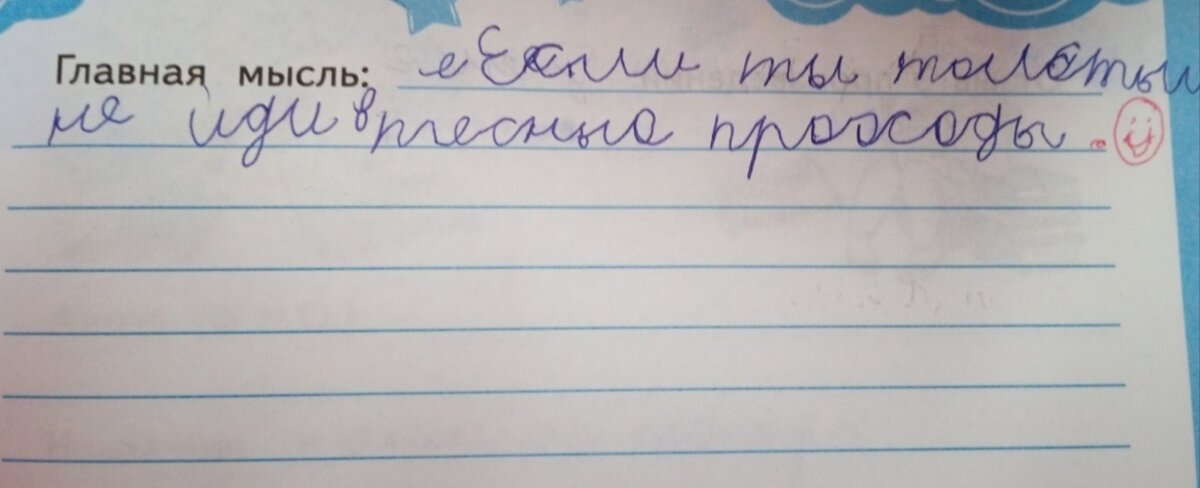 Главная мысль: е Если ты толстый
не иди в тесные проходы.